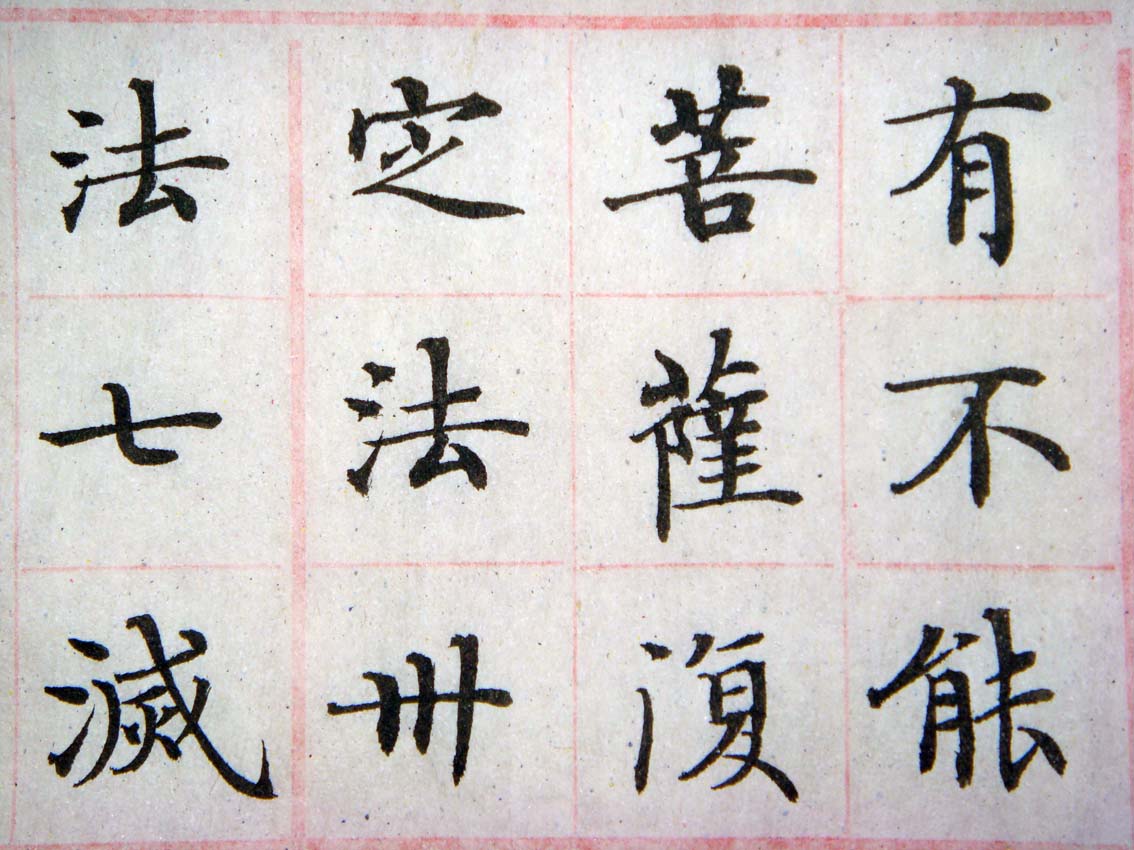 有不能
菩薩復
定法卅
法七滅